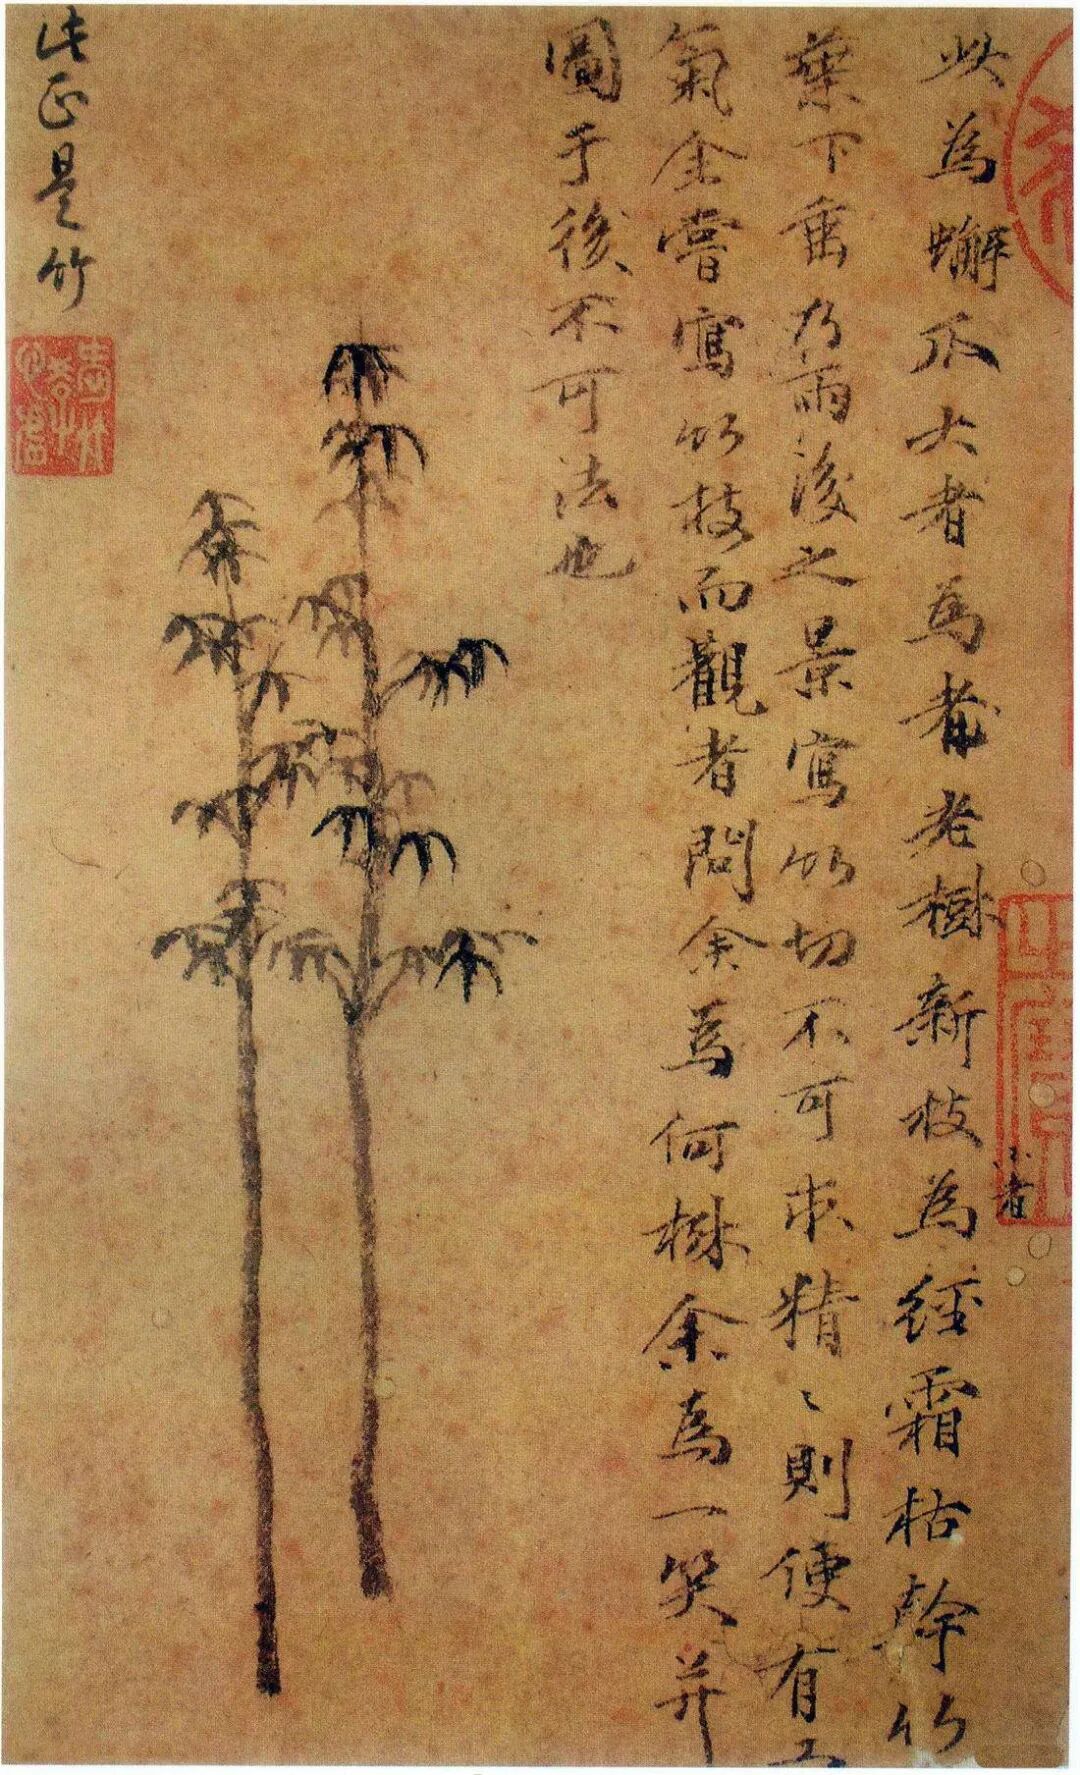 此為蠏爪大者為老樹新枝為經霜枯幹竹
小者
葉下垂乃雨後之景寫竹切不可求精〻則便有工
氣全嘗寫竹枝而觀者問余為何樹余為一笑并
圖于後不可法也
此正是竹